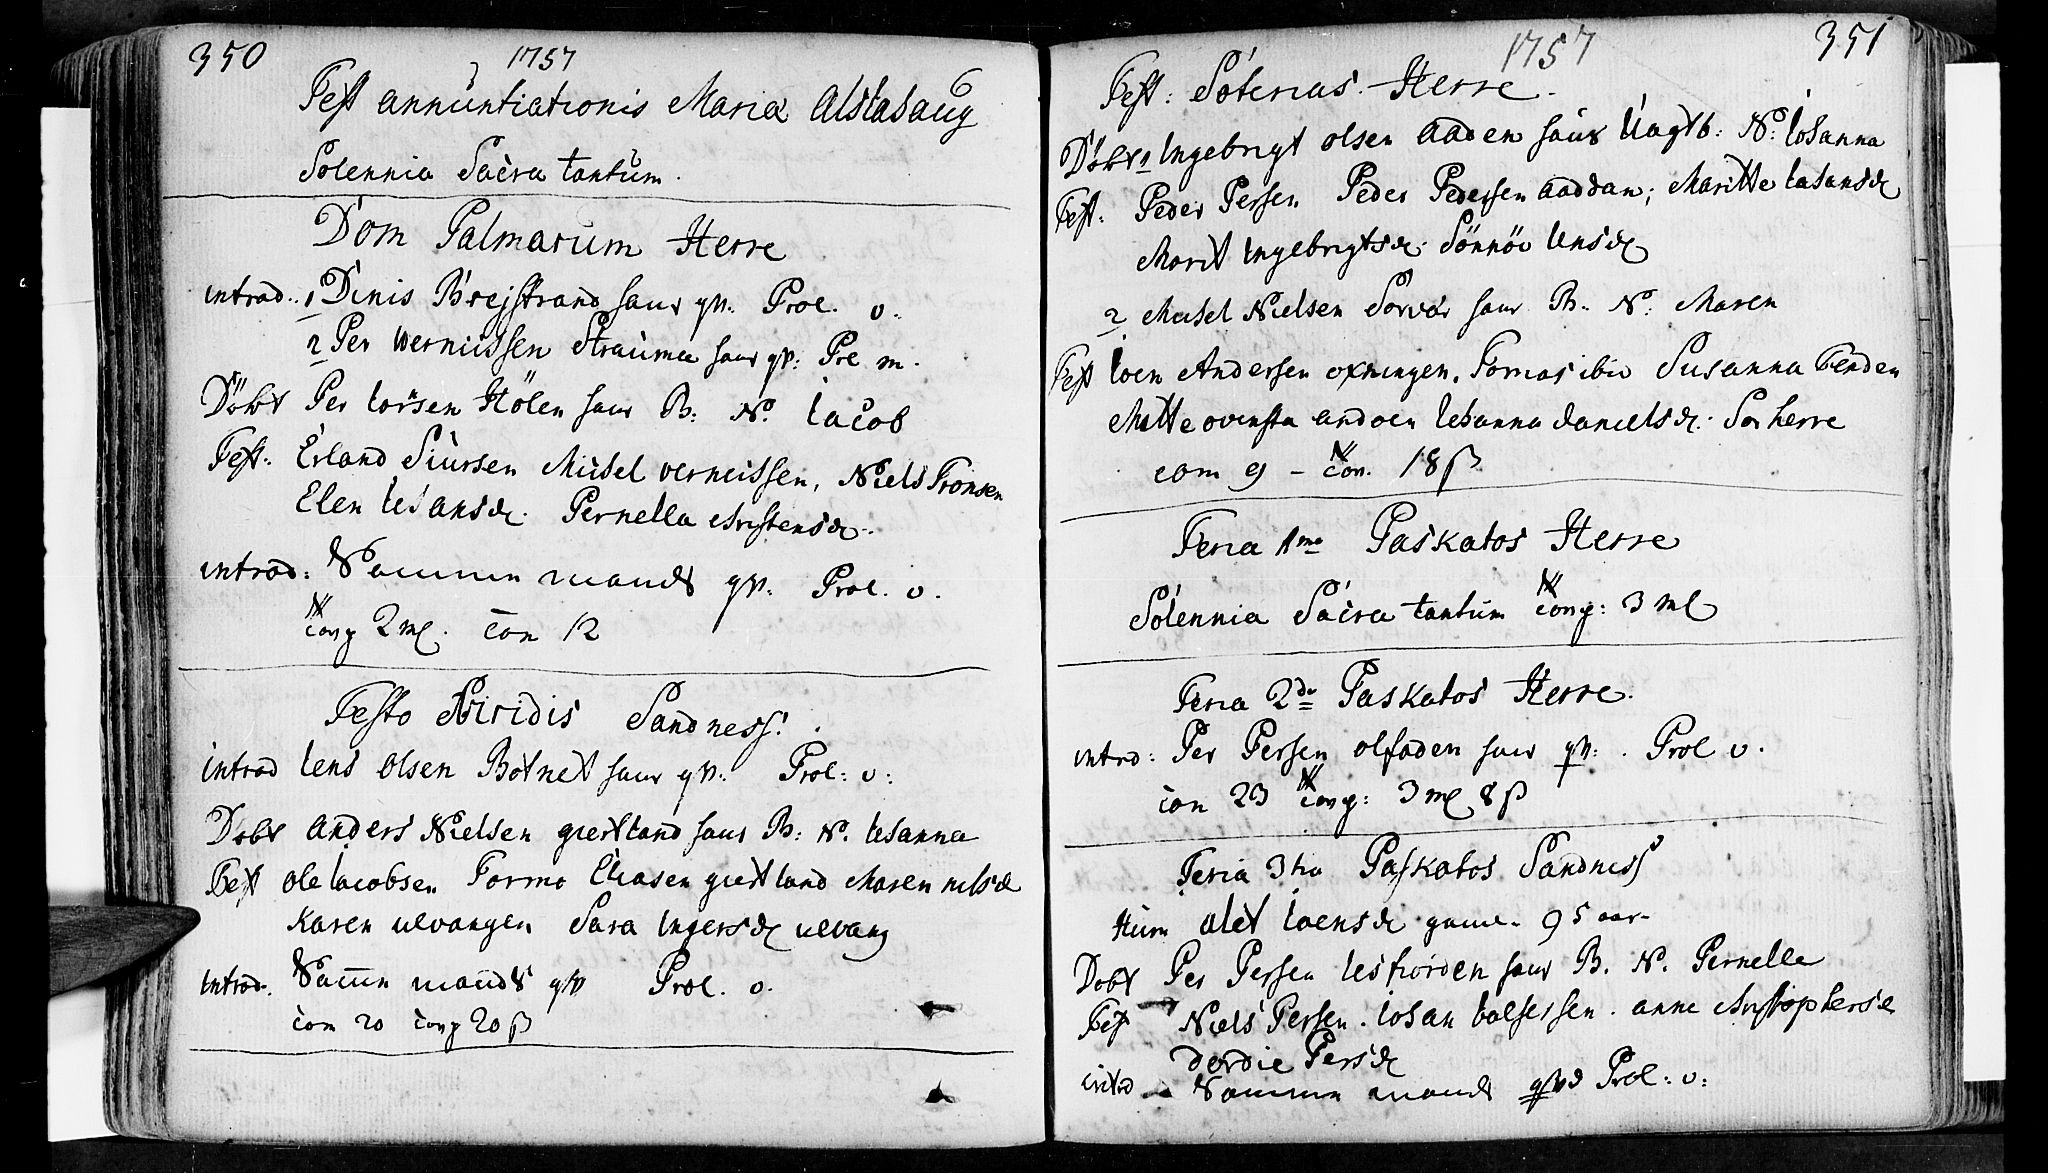 350
1757
Fest annuntiationis Mariæ Alstahaug
Solennia Sacra tantum.
Dom Palmarum Herre
introd. 1 Dinis Brejstrand haur qv. Prol. v.
2 Per werniissen Strauma haur qv: Prl m.
Döbt Per Iörsen Hölen haur B: N. Iacob
Test: Erland Siursen Misel verniissen, Niels Tronsen
Elen Iesansd. Pernella Christensd.
introd: Sammen mands qv. Prol. v.
Cong 2 ml. com 12
Festo Viridis Sandness.
introd Iens Olsen Botnet haur qv. Prol: v:
Döbt anders Nielsen giertland haur B: N. Iesanna
Test ole Iacobsen Tormo Eliasen giertland Maren nilsd
Karen ulvangen Sara Ingersd ulvang
introd. Samen mands qv Prol. v.
com 20 cong 20 ß
1757
351
Fest: Soterias. Herre.
Döbt 1 Ingebrigt olsen aaden haur B: N: Iosanna
Test: Peder Persen Peder Pedersen aaddan; Maritte Iasansd
Marit Ingebrigtsd. Sönnöv Iensd
2 Misel Nielsen Sorvær haur B. N: Maren
Test Ioen Andersen oxningen. Tomas ibid Susanna Tenden
Mette ovensta andoen Iesanna danielsd. Sör herre
com 9 - Con. 18 ß
Feria 1ma Paskatos Herre
Solennia Sacra tantum Cong: 3 ml
Feria 2da Paskatos Herre.
introd: Per Persen olfoden haur qv: . Prol v.
com 23 Cong: 3 ml 8 ß
Feria 3tia Paskatos Sandness
Hum alet Ioensd gamel 95 aar
Döbt Per Persen haur B. N. Pernelle
Test Niels Persen. Iosan balsersen. anne Christophersd
dordie Persd
introd Sammen mands qvd Prol: v: